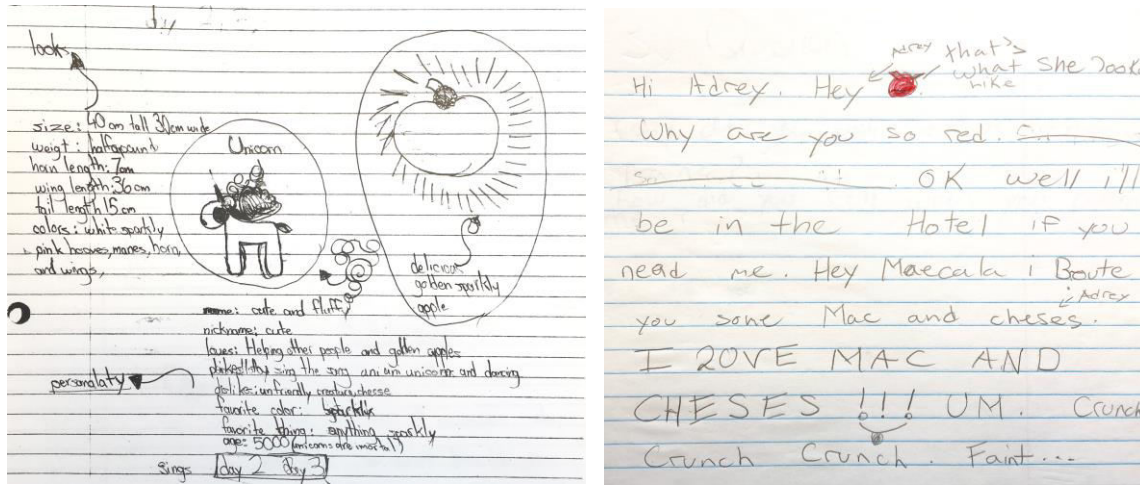 looks
size: 40 cm tall 30cm wide
weigt: half pound
horn length: 7cm
wing length: 36 cm
tail length 15 cm
colors: white sparkly
pink hooves, manes, horn,
and wings,
Unicorn
delicious
golden sparkly
apple
name: cute and fluffy
nickname: cute
loves: Helping other people and golden apples
sing the song and dancing
personalaty
dislike: unfriendly creature, cheese
favorite color: sparkly
favorite thing: anything sparkly
age: 5000
sings day 2 day 3
Adrey that's
what She look
like
Hi Adrey. Hey
Why are you so red.
OK well i'll
be in the Hotel if you
need me. Hey Maecala i Broute
Adrey
you some Mac and cheses.
I LOVE MAC AND
CHESES !!! UM. Crunch
Crunch Crunch. Faint...